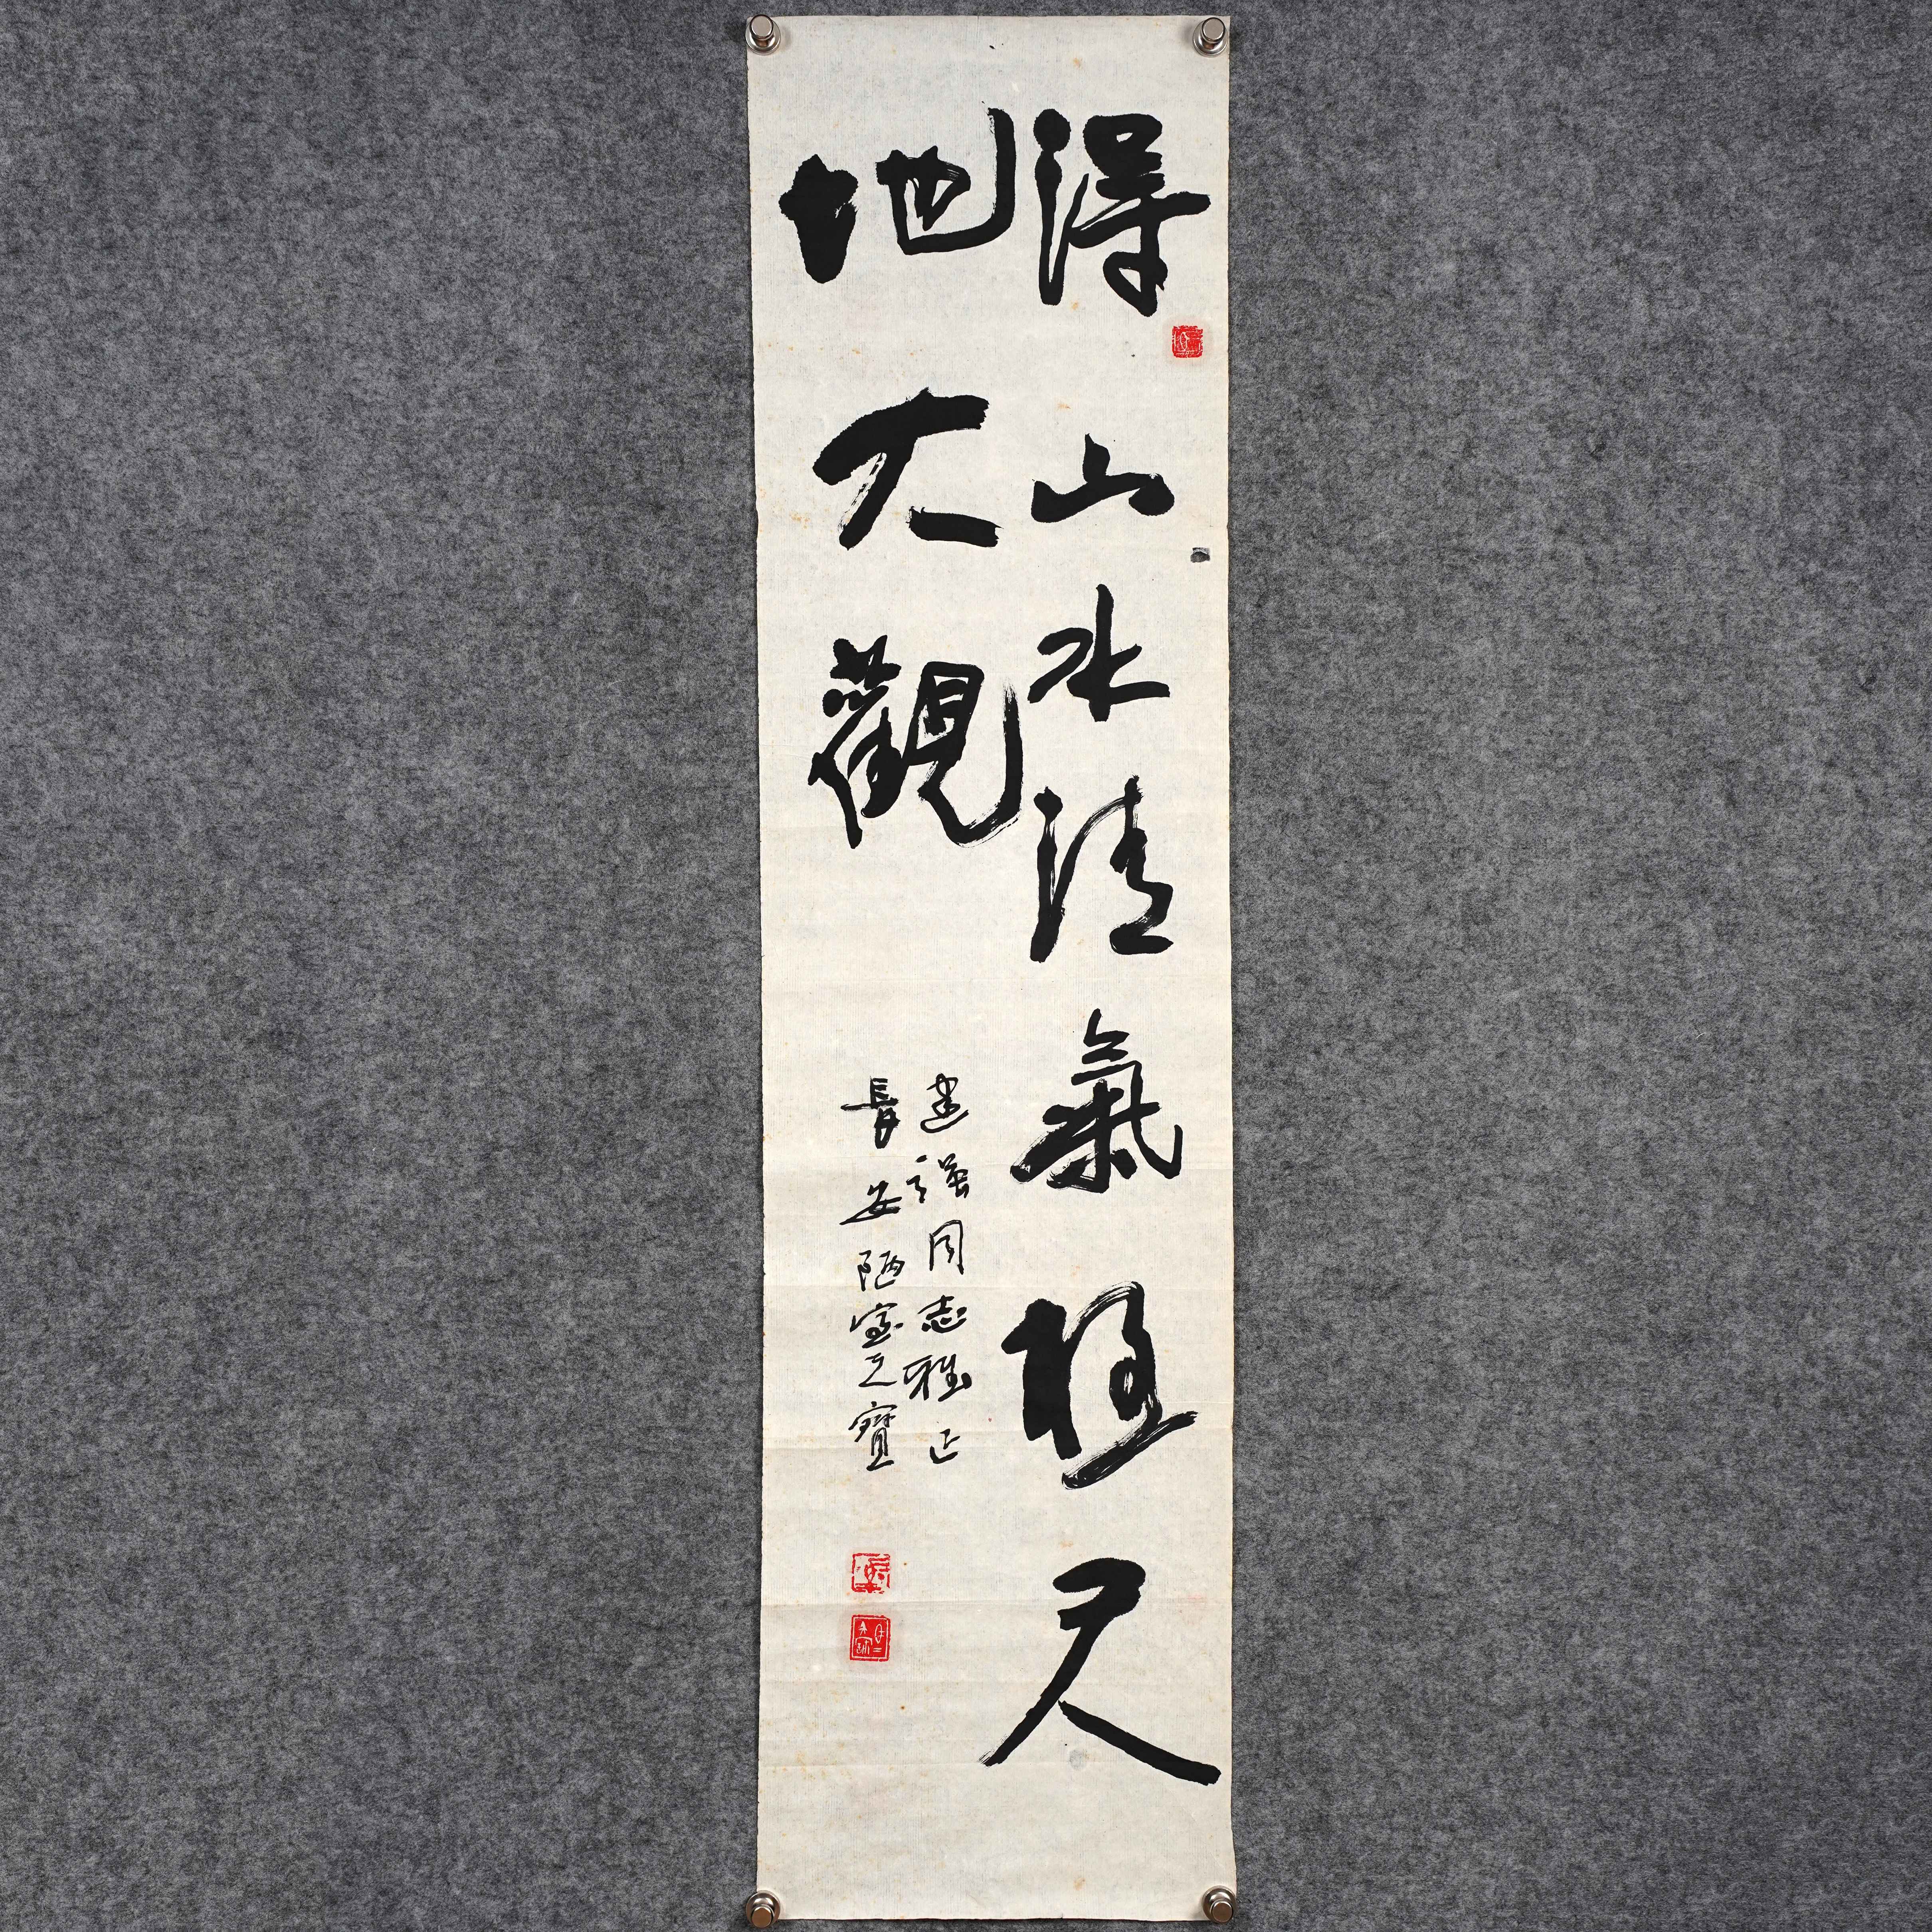 得山水清氣極天
地大觀
建强同志雅正
長安陋室之寶